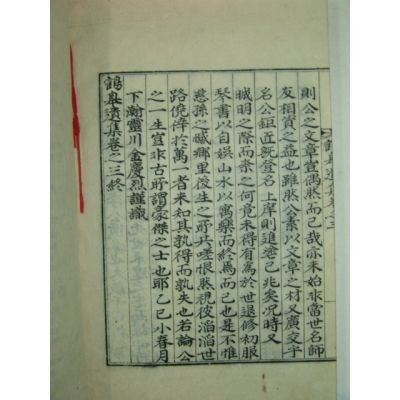 則公之文章豈偶然而已哉亦未始非當世名師
友相資之益也雖然公素以文章之材又廣交宇
名公鉅匠既登名上庠則進塗已兆矣况時又
臧明之際而柰之何竟未得有爲於世退修初服
琴書以自娱山水以寓樂而終焉而已也是不惟
慈孫之臧鄉里後生之所共嗟恨然視彼滔滔世
路僥倖於萬一者未知其孰得而孰失也若論公
之一生豈非古所謂豪傑之士也耶乙巳小春月
下瀚靈川金慶烈謹識
鶴皐遺集卷之三終